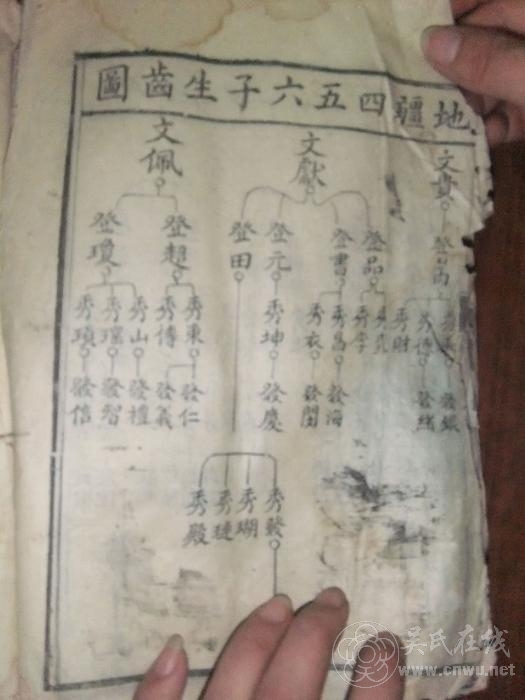 地疆四五六子生齒圖
文貴 文獻 文佩
登高 登品 登書 登元 登田 登超 登瓊
秀財 秀李 秀昌 秀衣 秀坤 秀東 秀傳 秀山 秀瑞 秀頊
發銀 發緒 發海 發閏 發慶 發仁 發義 發禮 發智 發信
秀發 秀瑚 秀璉 秀殿
吴氏在线
www.cnwu.net